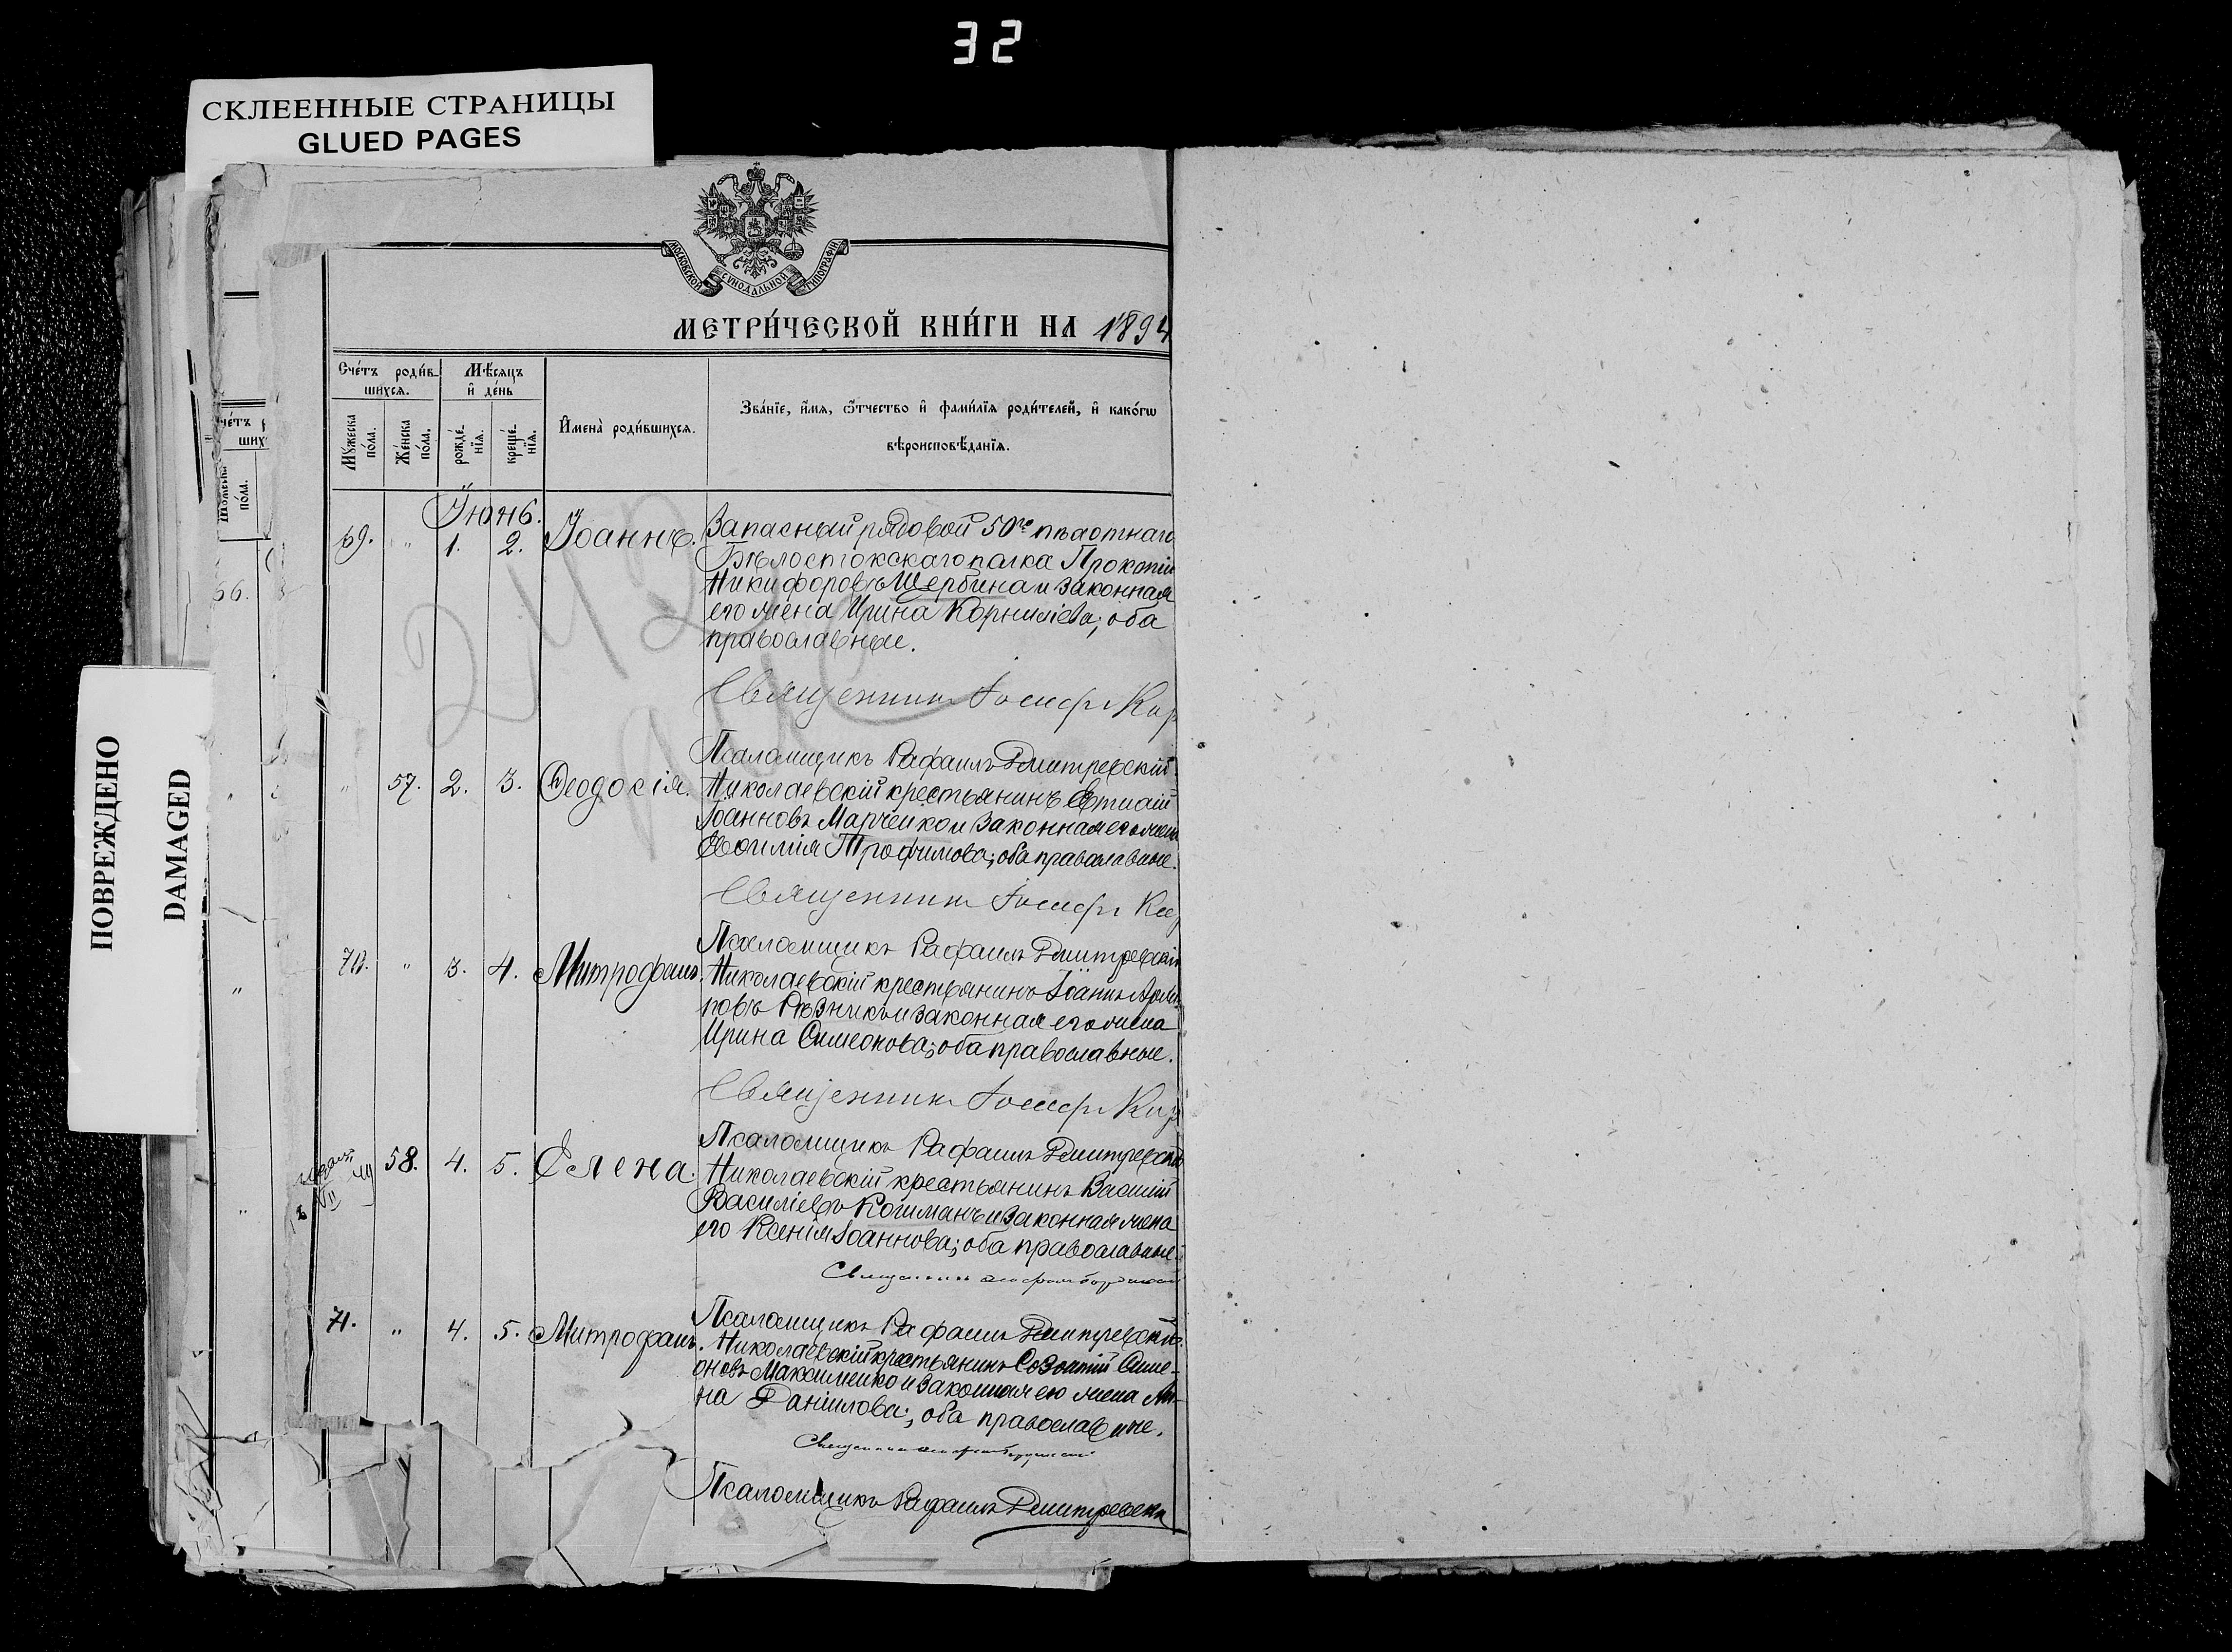 32
СКЛЕЕННЫЕ СТРАНИЦЫ
GLUED PAGES
ПОВРЕЖДЕНО
DAMAGED
МОСКОВСКОЙ СѴНОДАЛЬНОЙ ТИПОГРАФІИ
МЕТРИ́ЧЕСКОЙ КНИ́ГИ НА 1894
Сче́тъ роди́в-
шихся.
Мѣ́сяцъ
и҆ де́нь
Мꙋ́жеска
по́ла.
Же́нска
по́ла.
рожде́-
нїѧ.
креще́-
нїѧ.
И҆мена̀ роди́вшихся.
Зва́нїе, и҆́мѧ, ѻ҆́тчество и҆ фами́лїѧ роди́телей, и҆ како́гѡ
вѣроисповѣ́данїѧ.
Іюнь.
69. " 1. 2. Іоаннъ. Запасный рядовой 50го пѣхотнаго
Бѣлостокскаго полка Прокопій
Никифоровъ Щербина и законная
его жена Ирина Корниліева; оба
православные.
Священник Іосиф Кир
Псаломщикъ Рафаилъ Дмитревскій.
" 57. 2. 3. Ѳеодосія. Николаевскій крестьянинъ
Іоанновъ Марченко и законная его жена
Трофимова; оба православные.
Священник Іосиф
Псаломщикъ Рафаилъ Дмитревскій
70. " 3. 4. Митрофанъ. Николаевскій крестьянинъ Іоаннъ
повъ Рѣзникъ и законная его жена
Ирина Симеонова; оба православные.
Священник Іосиф Кир
Псаломщикъ Рафаилъ Дмитревскій
58. 4. 5. Елена. Николаевскій крестьянинъ Василій
Василіевъ Кошманъ и законная жена
его Ксенія Іоаннова; оба православные
Священникъ
Псаломщикъ Рафаилъ Дмитревскій.
71. " 4. 5. Митрофанъ. Николаевскій крестьянинъ Созонтій Симе-
оновъ Максименко и законная его жена Ан-
на Даніилова; оба православные.
Священникъ
Псаломщикъ Рафаилъ Дмитревскій
66.